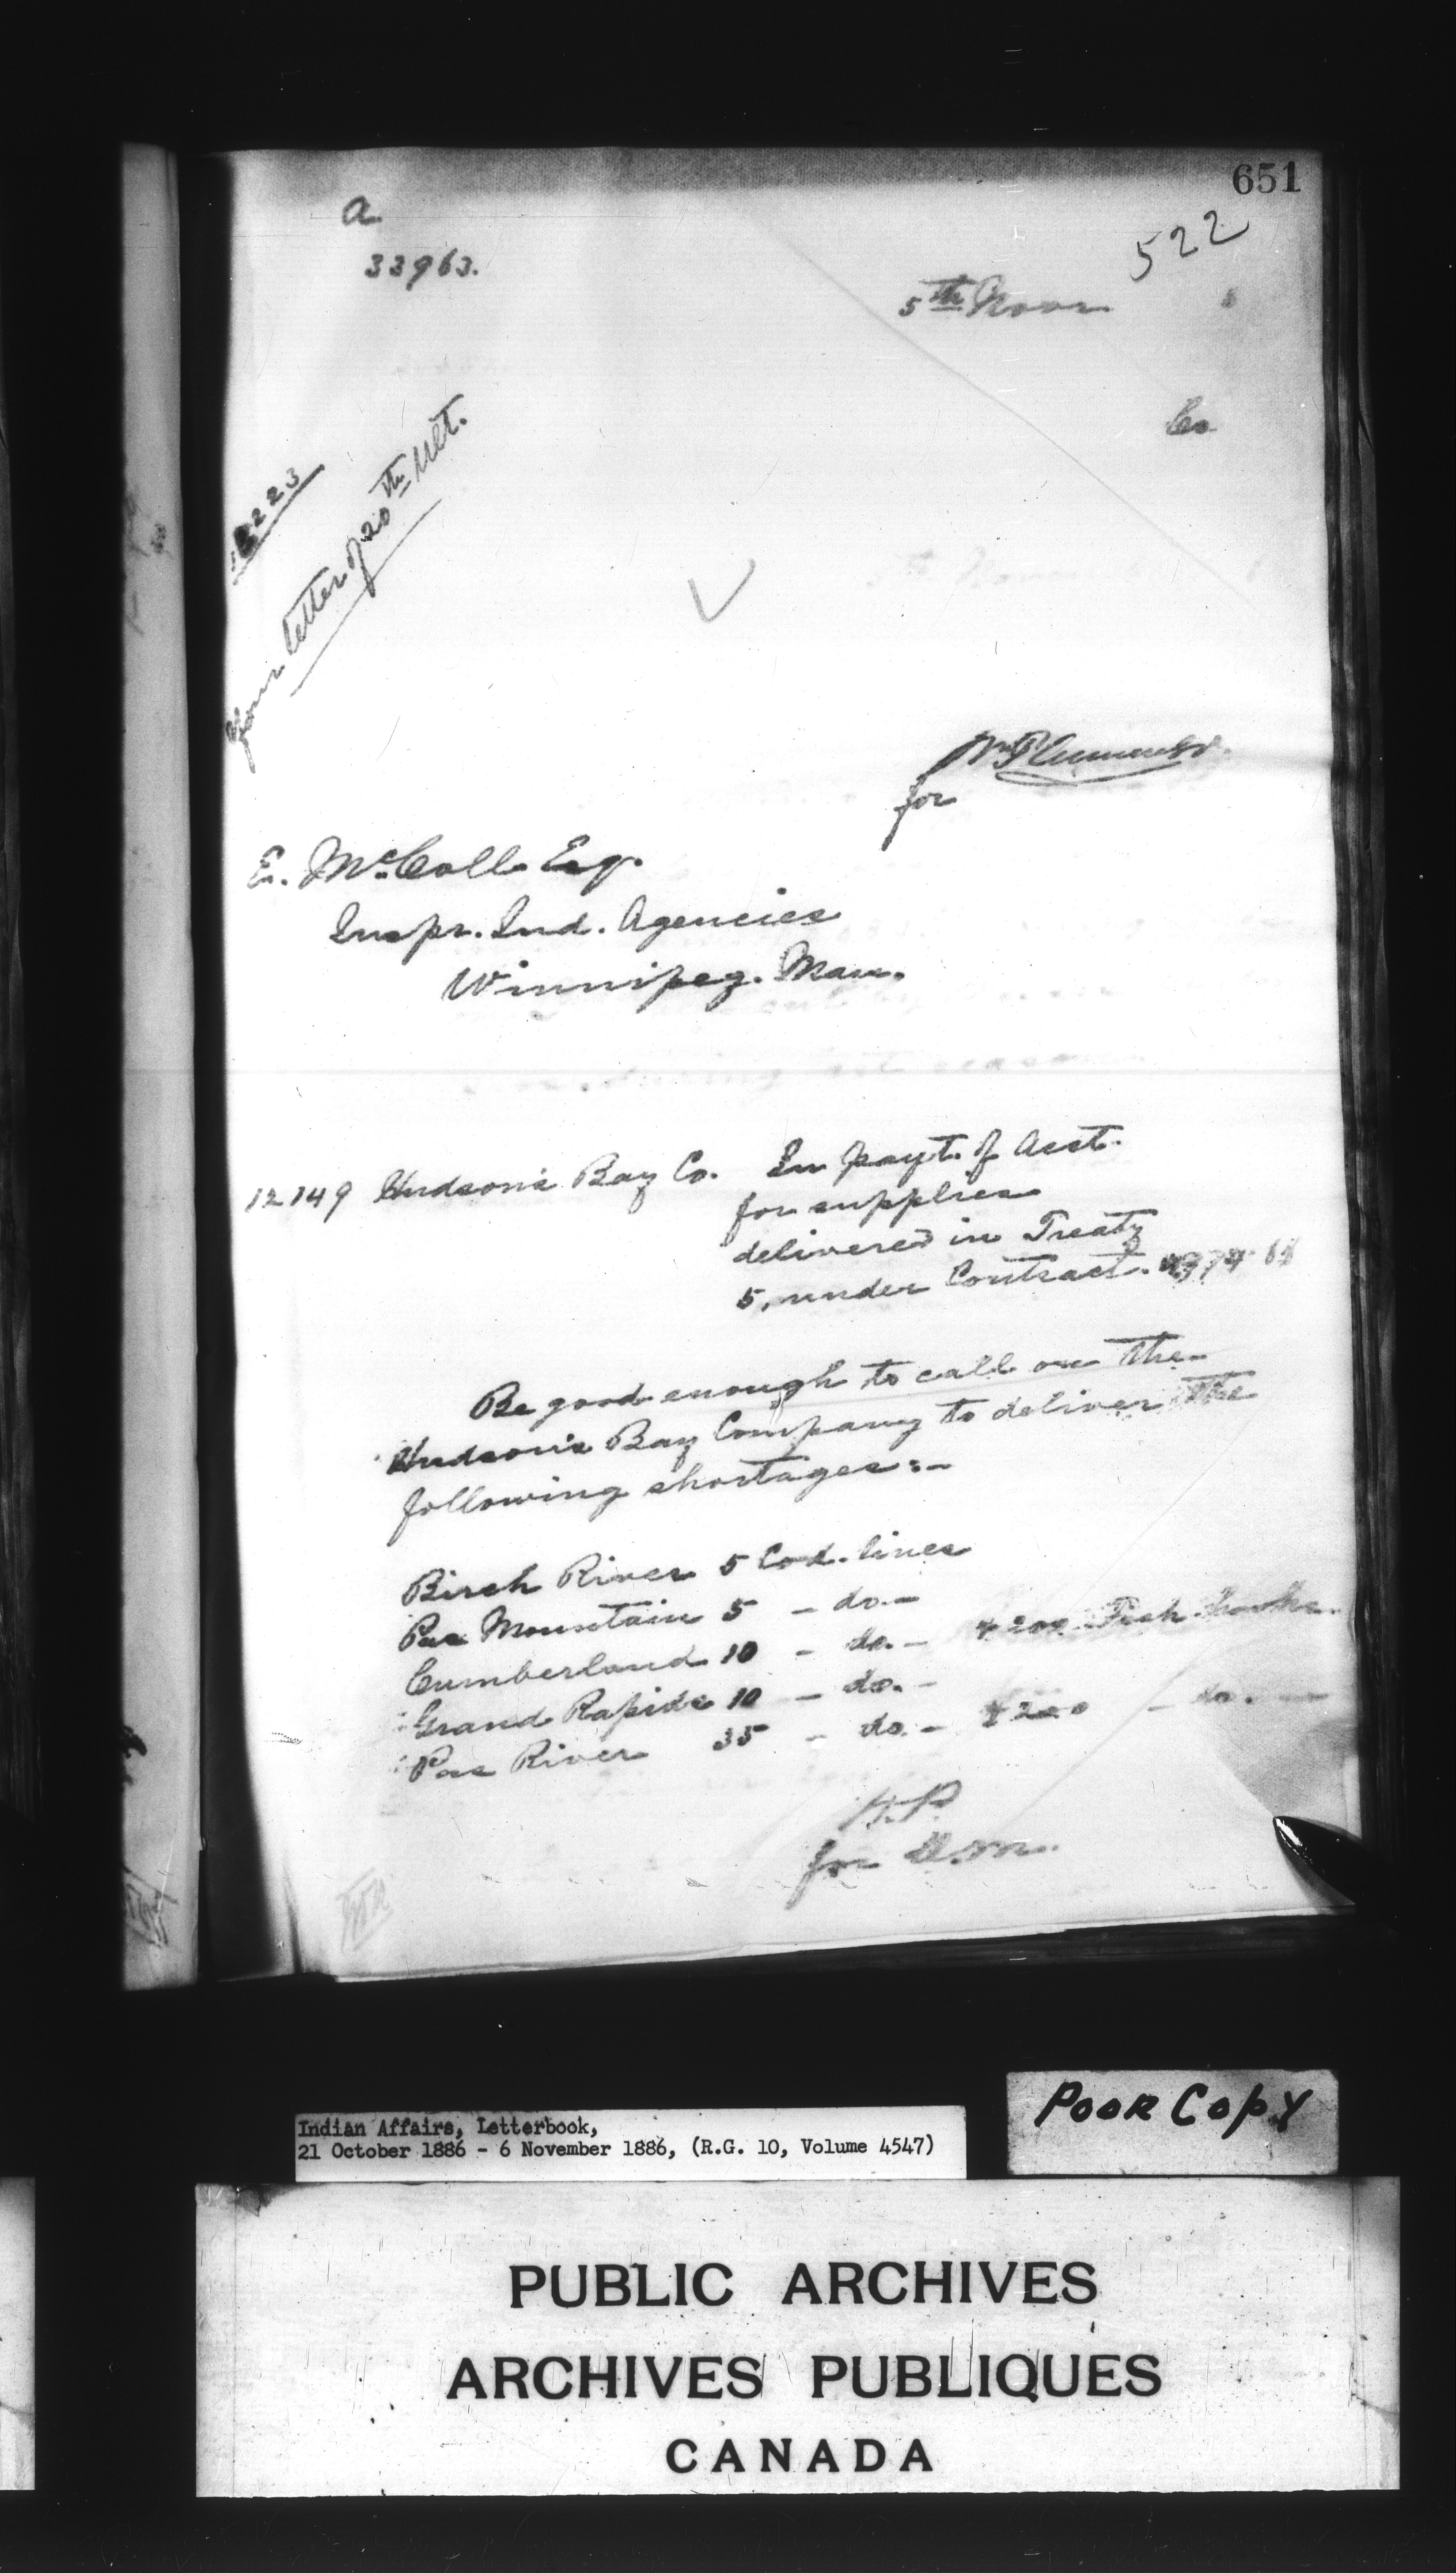 651
522
a
33963.
5th Novr 6
Co
223
Your letter of 20th Ult.
for
E. McColl Esq.
Inspr. Ind. Agencies
Winnipeg. Man.
12149 Hudson's Bay Co. In payt. of Acct.
for supplies
delivered in Treaty
5, under Contract.
Be good enough to call on the
Hudson's Bay Company to deliver the
following shortages:-
Birch River 5 Cod. lines
Pas Mountain 5 - do. -
Cumberland 10 - do. - + 200 Fish hooks
Grand Rapids 10 - do. -
Pas River 35 - do. - + 200 - do. -
H.P.
for D.M.
POOR COPY
Indian Affairs, Letterbook,
21 October 1886 - 6 November 1886, (R.G. 10, Volume 4547)
PUBLIC ARCHIVES
ARCHIVES PUBLIQUES
CANADA